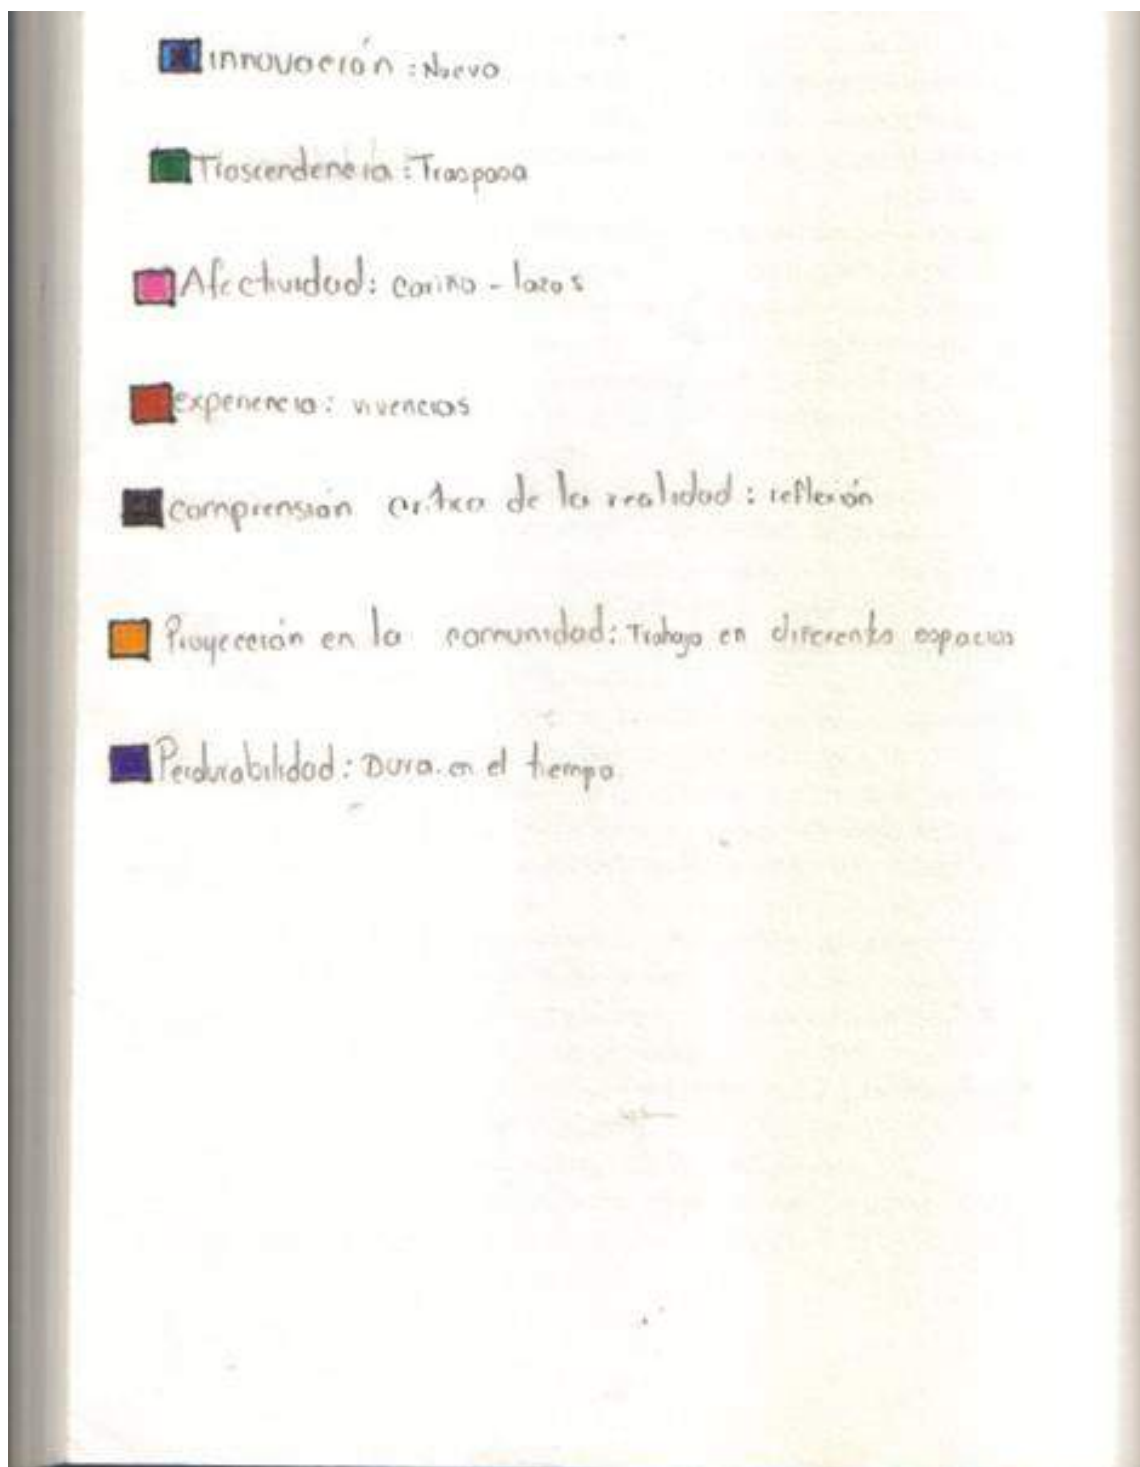 innovación : Nuevo
Trascendencia : Traspasa
Afectividad : cariño - lazos
experiencia : vivencias
comprensión crítica de la realidad : reflexión
Proyección en la comunidad : Trabajo en diferentes espacios
Perdurabilidad : Dura en el tiempo.